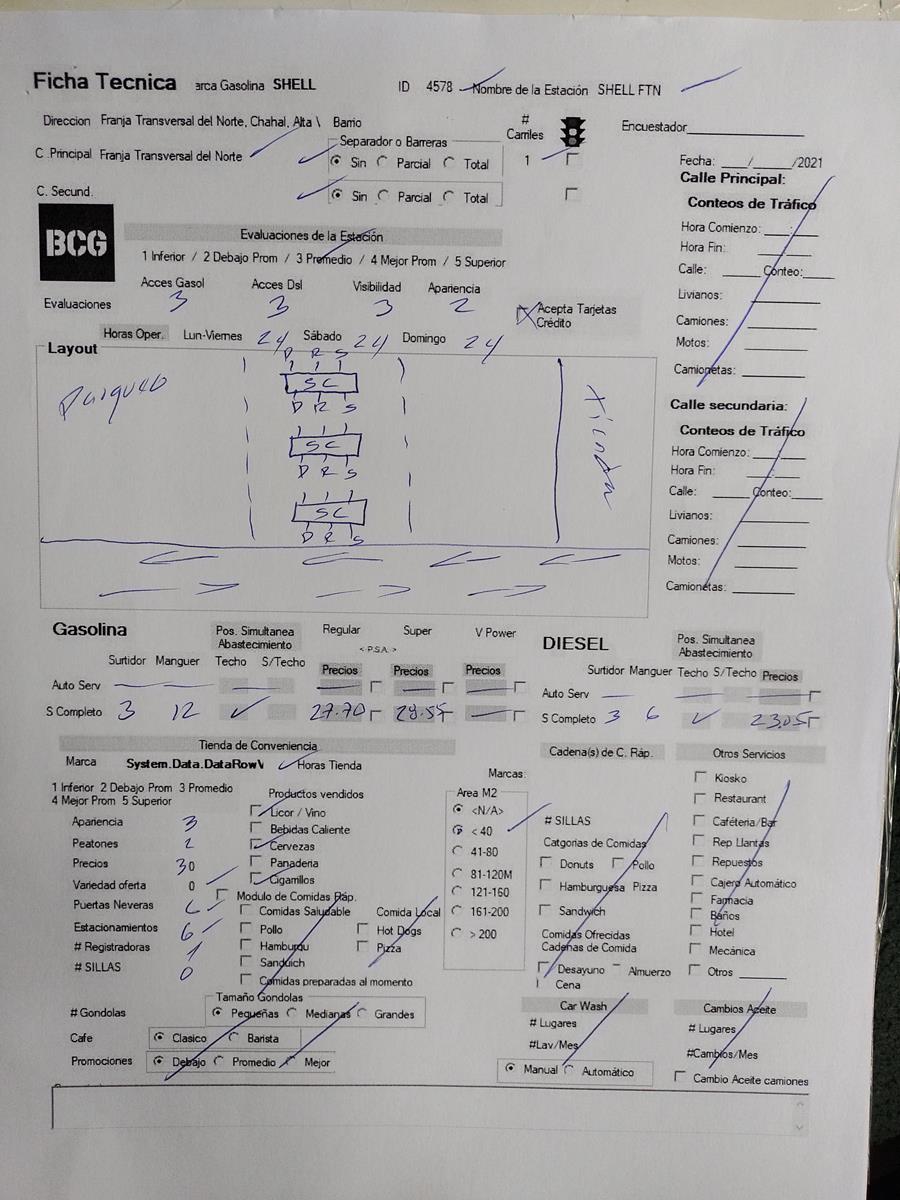 Ficha Tecnica arca Gasolina SHELL ID 4578 Nombre de la Estación SHELL FTN
Direccion Franja Transversal del Norte, Chahal, Alta \ Barrio # Carriles Encuestador
C .Principal Franja Transversal del Norte Separador o Barreras Sin Parcial Total 1 Fecha: ___/_____/2021
C. Secund. Sin Parcial Total
Calle Principal:
Conteos de Tráfico
Hora Comienzo: ____:____
Hora Fin:
Calle: Conteo:
Livianos:
Camiones:
Motos:
Camionetas:
BCG
Evaluaciones de la Estación
1 Inferior / 2 Debajo Prom / 3 Promedio / 4 Mejor Prom / 5 Superior
Acces Gasol Acces Dsl Visibilidad Apariencia
Evaluaciones 3 3 3 2 Acepta Tarjetas Crédito
Horas Oper. Lun-Viernes 24 Sábado 24 Domingo 24
Layout
D R S
SC
D R S
SC
D R S
SC
D R S
Parqueo
tienda
Calle secundaria:
Conteos de Tráfico
Hora Comienzo:
Hora Fin:
Calle: Conteo:
Livianos:
Camiones:
Motos:
Camionetas:
Gasolina Pos. Simultanea Abastecimiento Regular Super V Power
< P.S.A. >
Surtidor Manguer Techo S/Techo Precios Precios Precios
Auto Serv
S Completo 3 12 27.70 28.55
DIESEL Pos. Simultanea Abastecimiento
Surtidor Manguer Techo S/Techo Precios
Auto Serv
S Completo 3 6 23.05
Tienda de Conveniencia
Marca System.Data.DataRowV Horas Tienda
1 Inferior 2 Debajo Prom 3 Promedio
4 Mejor Prom 5 Superior
Apariencia 3
Peatones 2
Precios 3 0
Variedad oferta 0
Puertas Neveras 6
Estacionamientos 6
# Registradoras 1
# SILLAS 0
Productos vendidos
Licor / Vino
Bebidas Caliente
Cervezas
Panaderia
Cigarrillos
Modulo de Comidas Ráp.
Comidas Saludable Comida Local
Pollo Hot Dogs
Hamburgu Pizza
Sandüich
Comidas preparadas al momento
Marcas:
Area M2
<N/A>
< 40
41-80
81-120M
121-160
161-200
> 200
# Gondolas Tamaño Gondolas Pequeñas Medianas Grandes
Cafe Clasico Barista
Promociones Debajo Promedio Mejor
Cadena(s) de C. Ráp.
# SILLAS
Catgorias de Comidas
Donuts Pollo
Hamburguesa Pizza
Sandwich
Comidas Ofrecidas
Cadenas de Comida
Desayuno Almuerzo
Cena
Car Wash
# Lugares
#Lav/Mes
Manual Automático
Otros Servicios
Kiosko
Restaurant
Caféteria/Bar
Rep Llantas
Repuestos
Cajero Automático
Farmacia
Baños
Hotel
Mecánica
Otros
Cambios Aceite
# Lugares
#Cambios/Mes
Cambio Aceite camiones